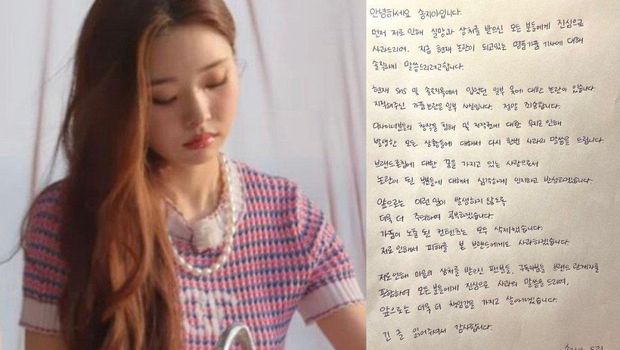 안녕하세요 송지아입니다.
먼저 저로 인해 실망과 상처를 받으신 모든분들에게 진심으로
사과드리며, 지금 현재 논란이 되고있는 명품가품 기사에 대해
솔직하게 말씀드리려고합니다.
현재 SNS 및 솔로지옥에서 입었던 일부 옷에 대한 논란이 있습니다.
지적해주신 가품논란은 일부 사실입니다. 정말 죄송합니다.
디자이너분들의 창작물 침해 및 저작권에 대한 무지로 인해
발생한 모든 상황들에 대해서 다시 한번 사과의 말씀을 드립니다.
브랜드론칭에 대한 꿈을 가지고 있는 사람으로서
논란이 된 부분들에 대해서 심각하게 인지하고 반성하겠습니다.
앞으로는 이런 일이 발생하지 않도록
더욱 더 주의하며 공부하겠습니다.
가품이 노출 된 컨텐츠는 모두 삭제했습니다.
저로 인해서 피해를 본 브랜드에게도 사과하겠습니다.
저로인해 마음의 상처를 받으신 팬분들, 구독자분들 브랜드 관계자를
포함하여 모든분들에게 진심으로 사과의 말씀을 드리며,
앞으로는 더욱 더 책임감을 가지고 살아가겠습니다.
긴 글 읽어주셔서 감사합니다.